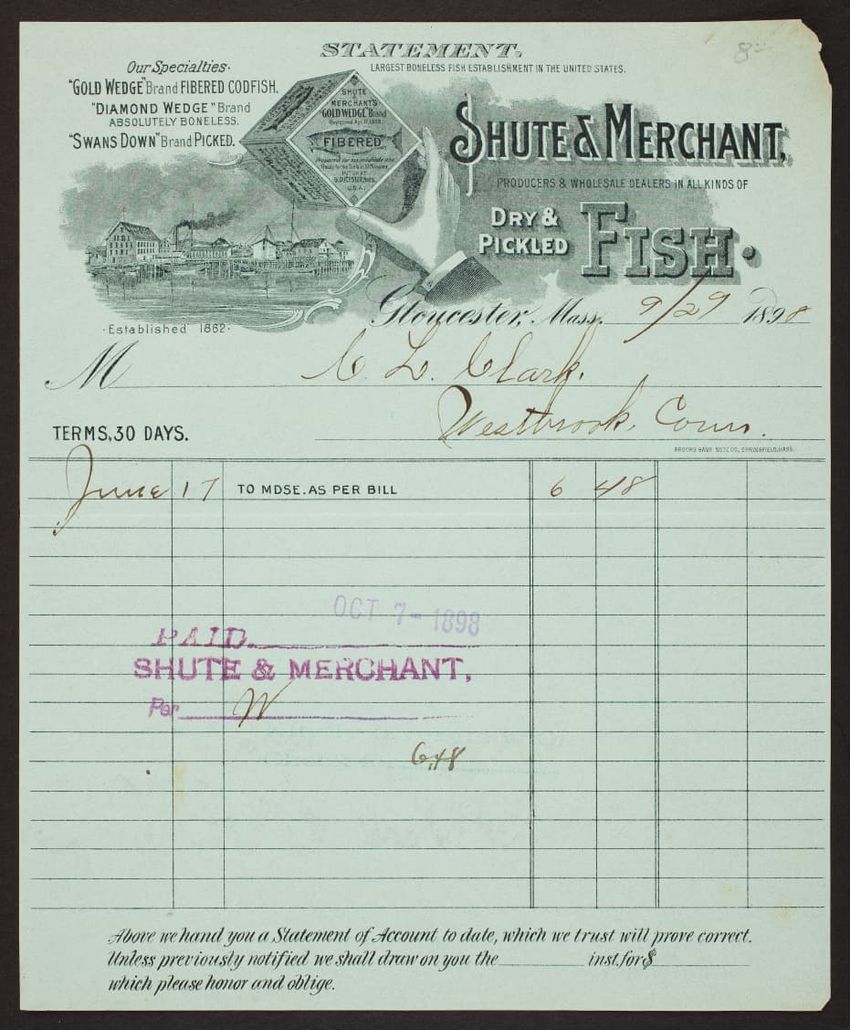 STATEMENT.
8-
LARGEST BONELESS FISH ESTABLISHMENT IN THE UNITED STATES.
Our Specialties.
"GOLD WEDGE" Brand FIBERED CODFISH.
"DIAMOND WEDGE" Brand
ABSOLUTELY BONELESS.
"SWANS DOWN" Brand PICKED.
SHUTE
&
MERCHANT'S
"GOLD WEDGE" Brand
FIBERED
GLOUCESTER, MASS.
U.S.A.
SHUTE & MERCHANT,
PRODUCERS & WHOLESALE DEALERS IN ALL KINDS OF
DRY &
PICKLED
FISH.
Established 1862.
Gloucester, Mass. 9/29 1898
M C. L. Clark.
Westbrook, Conn.
TERMS, 30 DAYS.
BROOKS BANK NOTE CO., SPRINGFIELD, MASS.
June 17 TO MDSE. AS PER BILL 6 48
OCT 7- 1898
PAID.
SHUTE & MERCHANT,
Per W
6.48
Above we hand you a Statement of Account to date, which we trust will prove correct.
Unless previously notified we shall draw on you the inst. for $
which please honor and oblige.